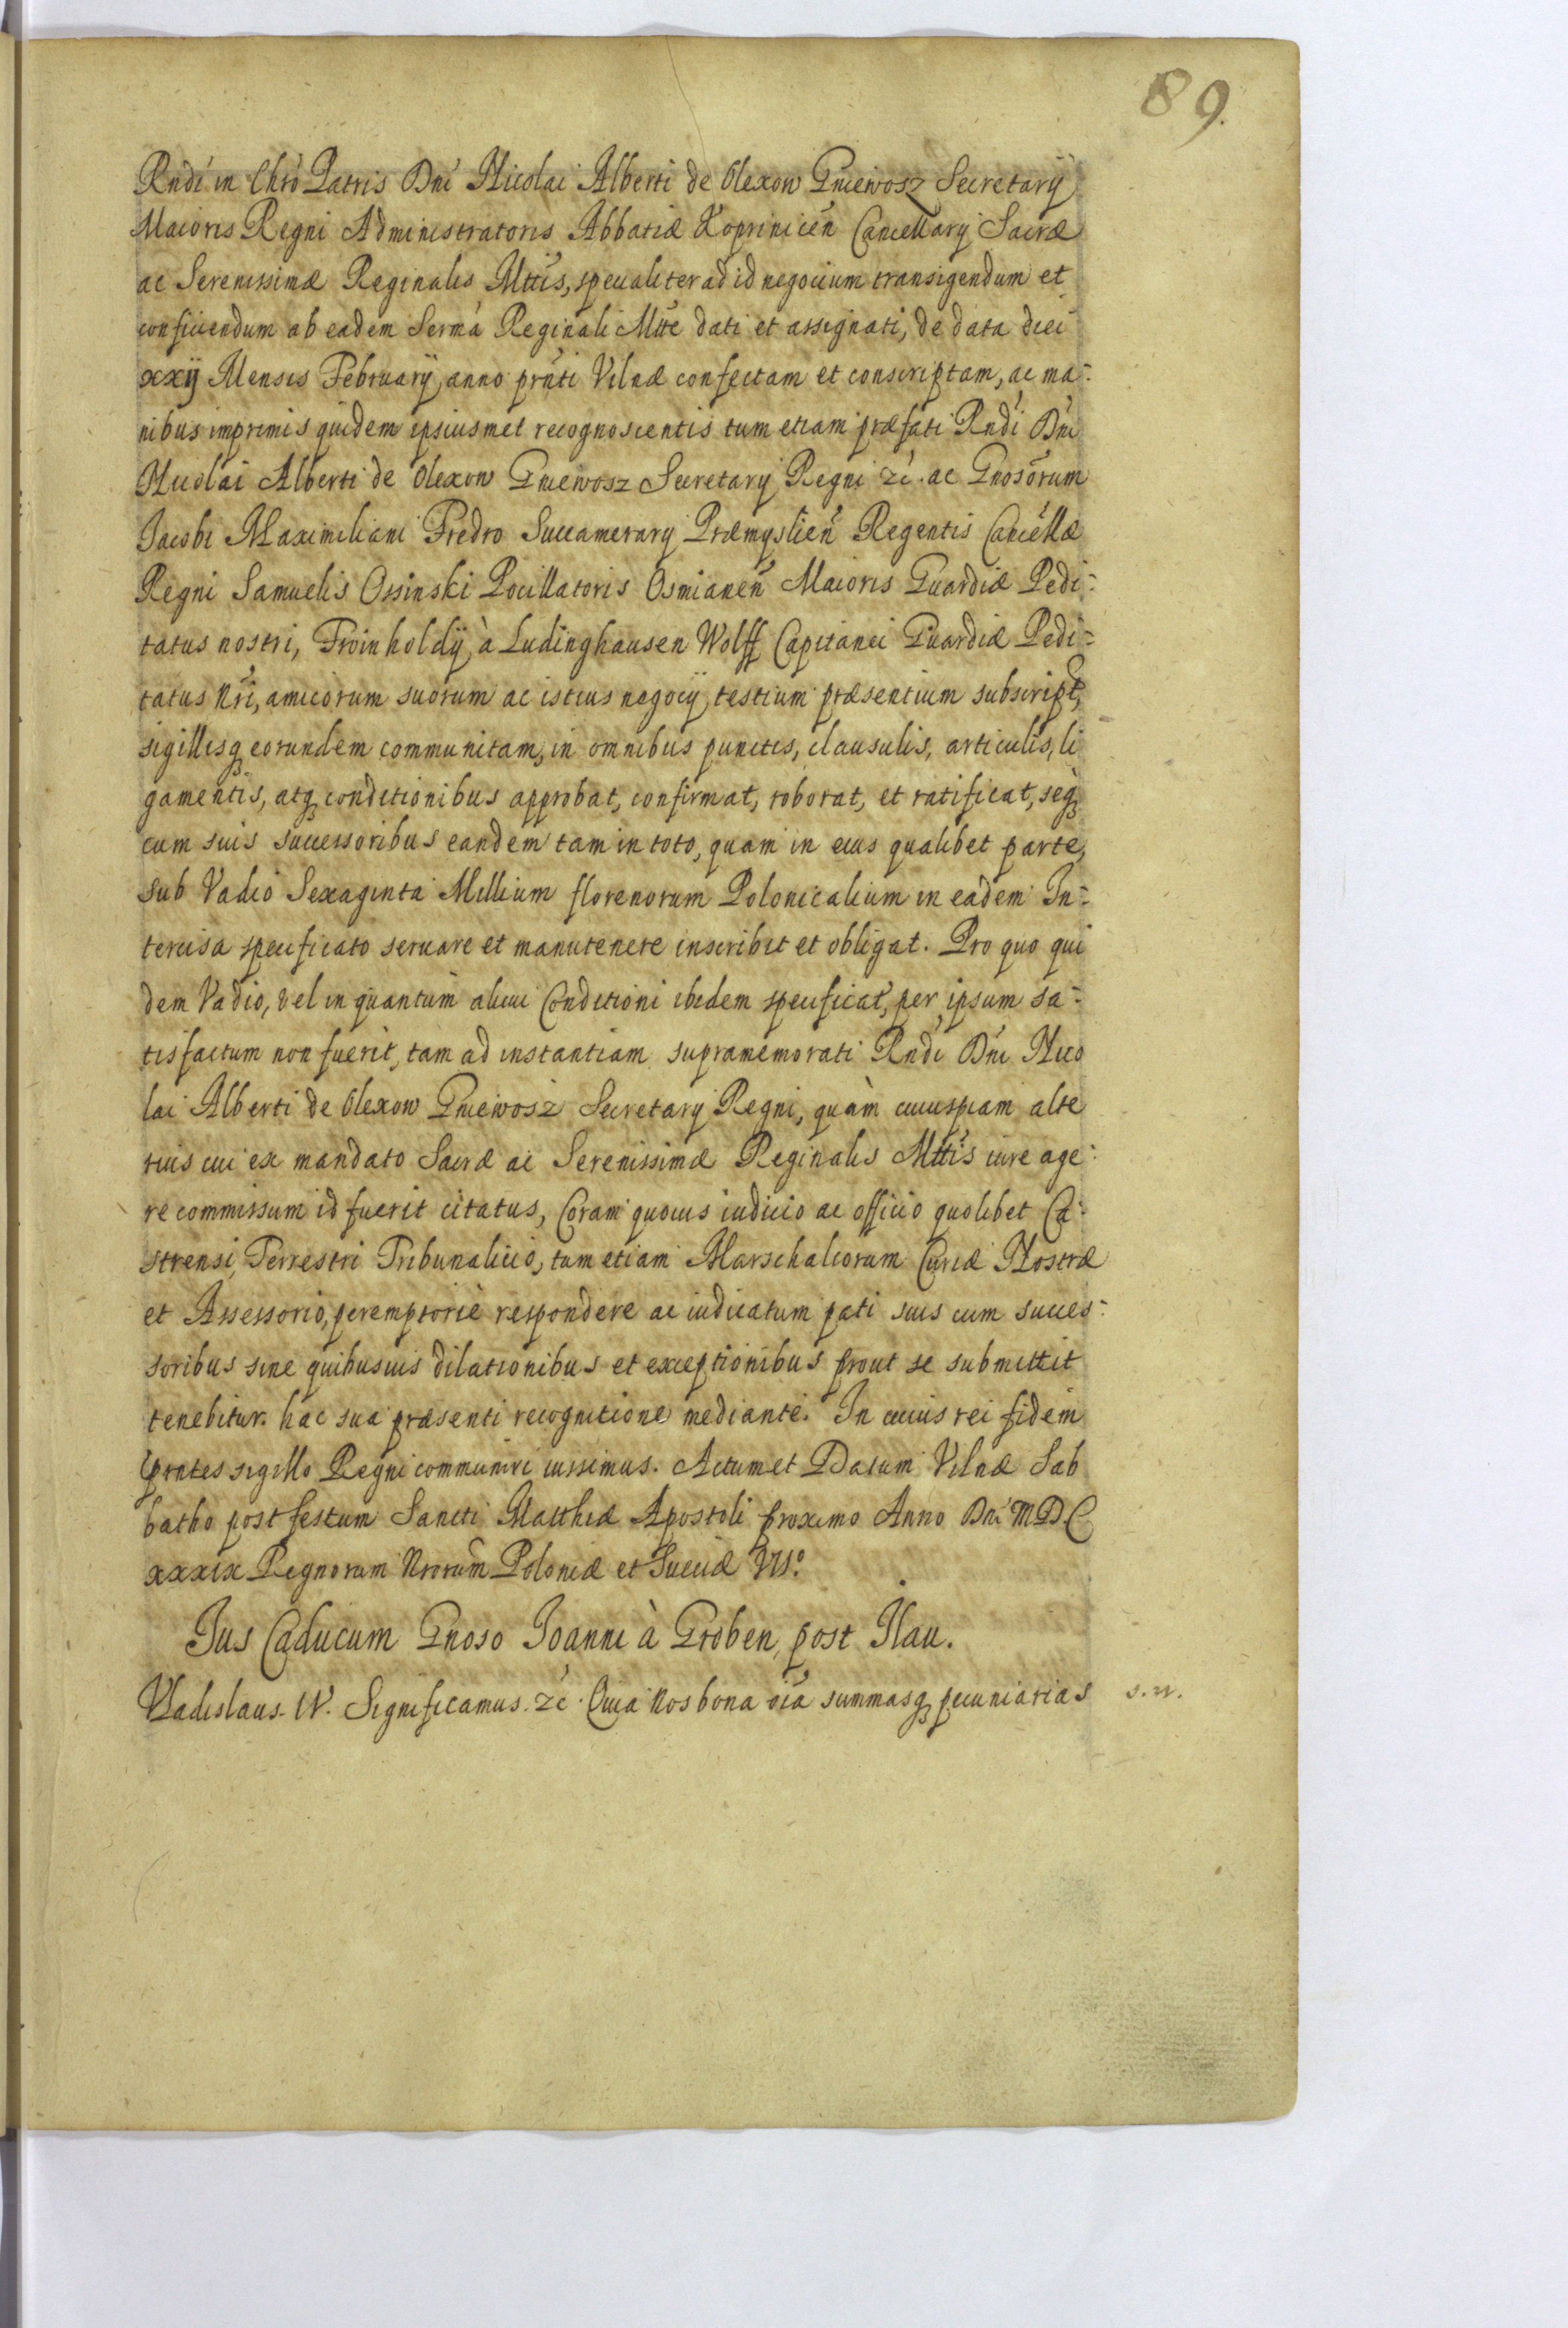 89.
Rndi in Chro Patris Dni Nicolai Alberti de Olexow Gniewosz Secretarij
Maioris Regni Administratoris Abbatiæ Koprinicen Cancellarij Sacræ
ac Serenissimæ Reginalis Mttis, specialiter ad id negocium transigendum et
conficiendum ab eadem Serma Reginali Mtte dati et assignati, de data diei
xxij Mensis February anno prnti Vilnæ confectam et conscriptam, ac ma-
nibus imprimis quidem ipsiusmet recognoscentis tum etiam præfati Rndi Dni
Nicolai Alberti de Olexow Gniewosz Secretarij Regni zc. ac Gnosorum
Jacobi Maximiliani Fredro Succamerarij Præmyslien Regentis Cancellæ
Regni Samuelis Ossinski Pocillatoris Osmianen Maioris Guardiæ Pedi-
tatus nostri, Froinholdij à Ludinghausen Wolff Capitanei Guardiæ Pedi-
tatus Nri, amicorum suorum ac istius negocij testium præsentium subscript,
sigillisq eorundem communitam, in omnibus punctis, clausulis, articulis, li
gamentis, atq conditionibus approbat, confirmat, roborat, et ratificat, seq
cum suis successoribus eandem tam in toto, quam in eius qualibet parte,
sub Vadio Sexaginta Millium florenorum Polonicalium in eadem In-
tercisa specificato seruare et manutenere inscribit et obligat. Pro quo qui
dem Vadio, vel in quantum alicui Conditioni ibidem specificat, per ipsum sa-
tisfactum non fuerit, tam ad instantiam supramemorati Rndi Dni Nico
lai Alberti de Olexow Gniewosz Secretarij Regni, quàm cuiuspiam alte
rius cui ex mandato Sacræ ac Serenissimæ Reginalis Mttis iure age-
re commissum id fuerit citatus, Coram quouis iudicio ac officio quolibet Ca-
strensi, Terrestri Tribunalicio, tum etiam Marschalcorum Curiæ Nostræ
et Assessorio, peremptoriè respondere ac iudicatum pati suis cum succes-
soribus sine quibusuis dilationibus et exceptionibus prout se submittit
tenebitur. hac sua præsenti recognitione mediante. In cuius rei fidem
prntes sigillo Regni communiri iussimus. Actum et Datum Vilnæ Sab
batho post festum Sancti Matthiæ Apostoli proximo Anno Dni MDC
xxxix Regnorum Nrorum Poloniæ et Sueciæ VIIo.
Jus Caducum Gnoso Joanni à Groben, post Ilau.
Vladislaus. IV. Significamus. zc. Quia Nos bona oia summasq pecuniarias s. n.